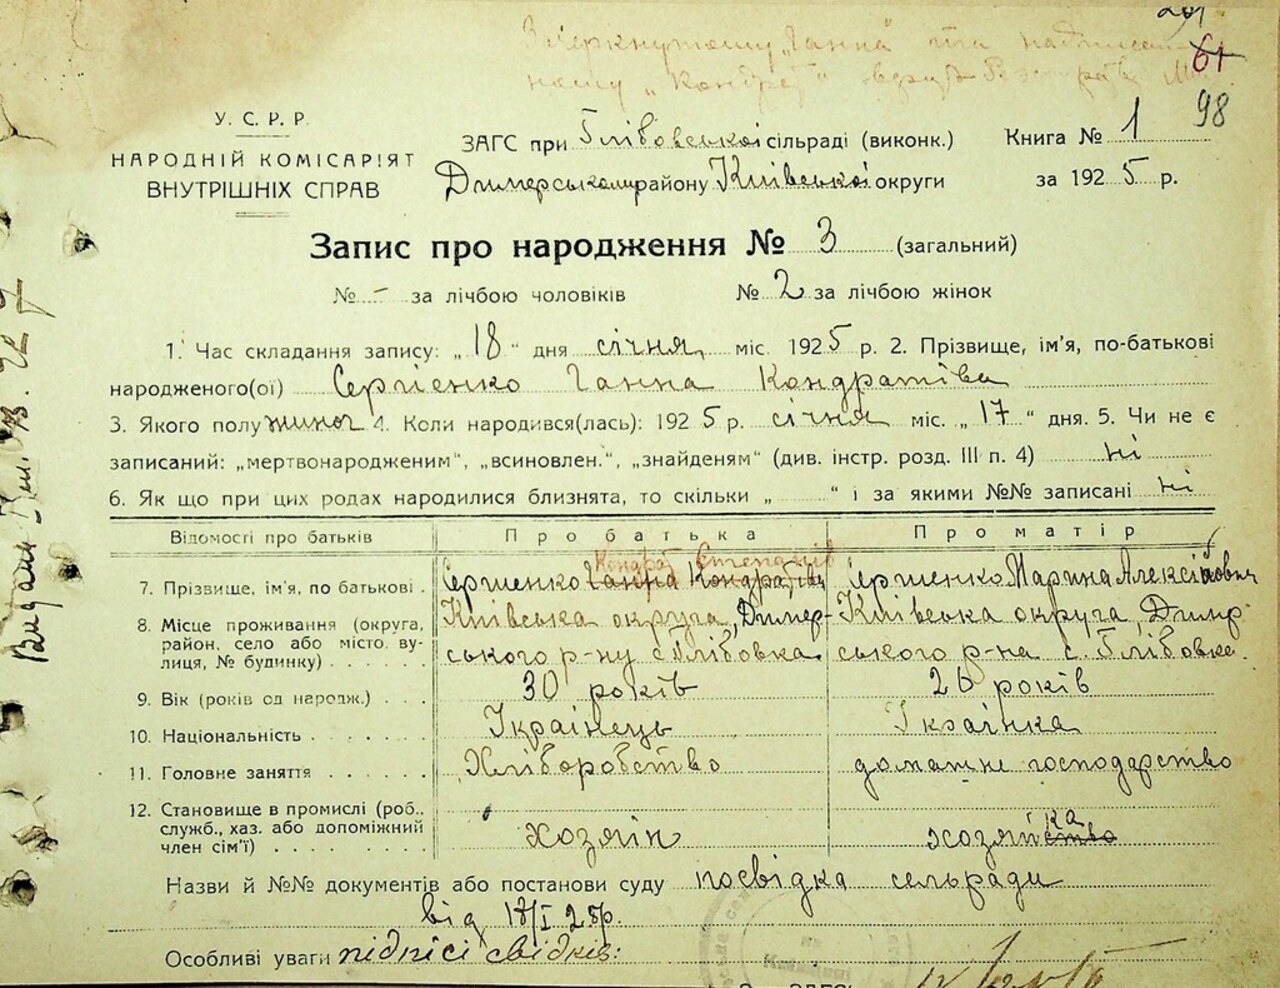 201
Зчеркнутому „Ганна" та надписаному
„Кондрат"
61
98
У. С. Р. Р.
НАРОДНІЙ КОМІСАРІЯТ
ВНУТРІШНІХ СПРАВ
ЗАГС при Глібовської сільраді (виконк.)
Димерському району Київської округи
Книга № 1
за 1925 р.
Запис про народження № 3 (загальний)
№ – за лічбою чоловіків № 2 за лічбою жінок
1. Час складання запису: „18" дня січня міс. 1925 р. 2. Прізвище, ім'я, по-батькові
народженого(ої) Сергієнко Ганна Кондратівна
3. Якого полу жиноч 4. Коли народився(лась): 1925 р. січня міс. „17" дня. 5. Чи не є
записаний: „мертвонародженим", „всиновлен.", „знайденям" (див. інстр. розд. III п. 4) ні
6. Як що при цих родах народилися близнята, то скільки „ " і за якими №№ записані ні
Відомості про батьків Про батька Про матір
Кондрат Степанів
7. Прізвище, ім'я, по батькові . Сергиенко Ганна Кондратівна Сергиенко Марина Алексіївович
8. Місце проживання (округа, район, село або місто, вулиця, № будинку) . . . . . .
Київська округа, Димерського р-ну с Глібовка. Київська округа, Димирського р-на с. Глібовке.
9. Вік (років од народж.) . . . 30 років 26 років
10. Національність . . . . . . . Українець Українка
11. Головне заняття . . . . . . Хліборобство домашне господарство
12. Становище в промислі (роб., служб., хаз. або допоміжний член сім'ї) . . . . . . . . .
хозяїн хозяйство ка
Назви й №№ документів або постанови суду посвідка сельради
від 17/I 25р.
Особливі уваги підписі свідків: